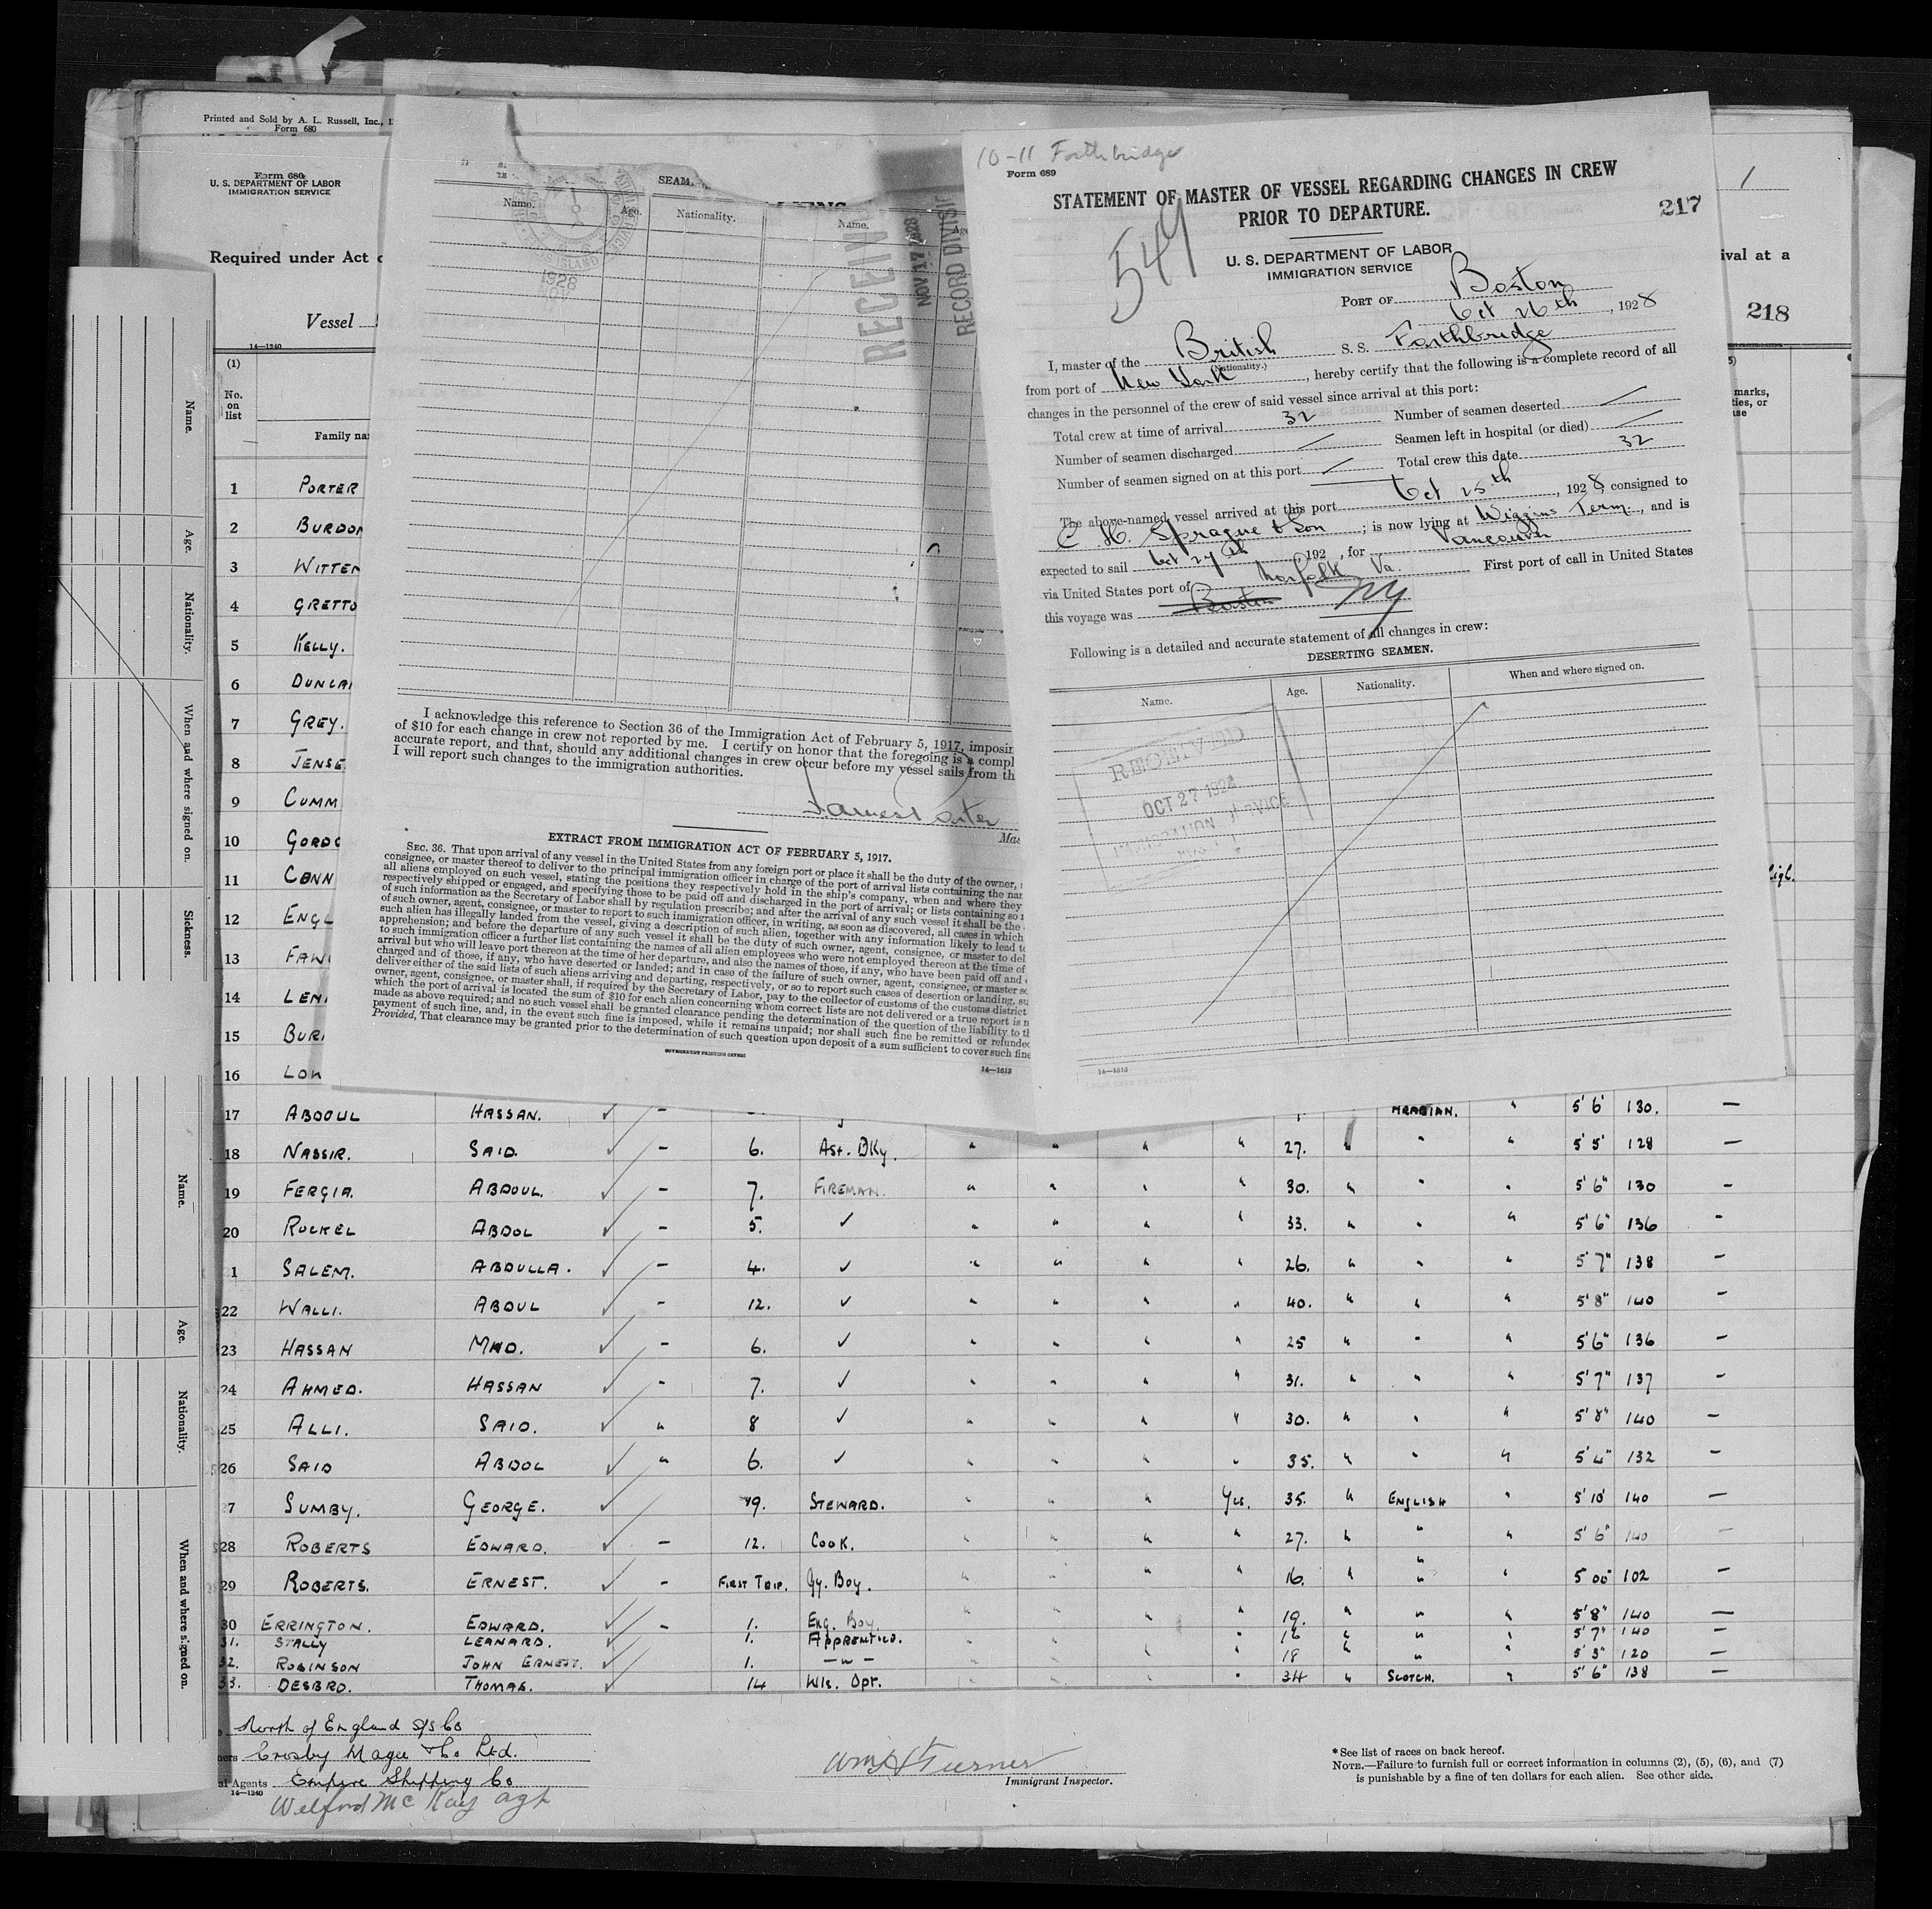 Printed and Sold by A. L. Russell, Inc., 1
Form 680
Form 680
U. S. DEPARTMENT OF LABOR
IMMIGRATION SERVICE
Required under Act
Vessel
14—1240
(1)
No. on list
Family na
1 PORTER
2 BURDON
3 WITTEN
4 GRETTO
5 KELLY.
6 DUNCA
7 GREY.
8 JENSE
9 CUMM
10 GORDO
11 CONN
12 ENGL
13 FAW
14 LEN
15 BUR
16 LOW
17 ABDOUL HASSAN. ✓ – ARABIAN. " 5' 6' 130. —
18 NASSIR. SAID. ✓ – 6. Ast. Dky. " " " " 27. " " " 5' 5' 128 —
19 FERGIA. ABDOUL. ✓ – 7. FIREMAN. " " " " 30. " " " 5' 6" 130 –
20 RUCKEL ABDOL ✓ – 5. ✓ " " " " 33. " " " 5' 6" 136 –
1 SALEM. ABDULLA. ✓ – 4. ✓ " " " " 26. " " " 5' 7" 138 –
22 WALLI. ABDUL ✓ – 12. ✓ " " " " 40. " " " 5' 8" 140 –
23 HASSAN MHD. ✓ – 6. ✓ " " " " 25 " " " 5' 6" 136 –
24 AHMED. HASSAN ✓ – 7. ✓ " " " " 31. " " " 5' 7" 137 –
25 ALLI. SAID. ✓ " 8 ✓ " " " " 30. " " " 5' 8" 140 –
26 SAID ABDOL ✓ " 6. ✓ " " " " 35. " " " 5' 4" 132 –
27 SUMBY. GEORGE. ✓ 19. STEWARD. " " " Yes. 35. " ENGLISH " 5' 10' 140 —
28 ROBERTS EDWARD. ✓ – 12. COOK. " " " " 27. " " " 5' 6" 140 –
29 ROBERTS. ERNEST. ✓ – FIRST TRIP. Gy. Boy. " " " " 16. " " " 5 00" 102 –
30 ERRINGTON. EDWARD. ✓ – 1. Eng. Boy. " " " " 19. " " " 5' 8" 140 —
31. STALLY LEANARD. ✓ 1. APPRENTICE. " 16 " " " 5' 7" 140 –
32. ROBINSON JOHN ERNEST. ✓ 1. — " — " " " " 18 " " " 5' 3" 120 –
33. DESBRO. THOMAS. ✓ 14 Wls. Opr. " " " " 34 " SCOTCH. " 5' 6" 138 —
North of England S/S Co
ners Crosby Magee & Co. Ltd.
al Agents Empire Shipping Co
14—1240
Welford McKay agt
Wm A Turner
Immigrant Inspector.
* See list of races on back hereof.
NOTE.—Failure to furnish full or correct information in columns (2), (5), (6), and (7)
is punishable by a fine of ten dollars for each alien. See other side.
Name.
Age.
Nationality.
When and where signed on.
Sickness.
Name.
Age.
Nationality.
When and where signed on.
SEAM
Name. Age. Nationality. Name. Ag
1928
NOV
RECEIV
NOV 17 1928
RECORD DIVISI
I acknowledge this reference to Section 36 of the Immigration Act of February 5, 1917, imposin
of $10 for each change in crew not reported by me. I certify on honor that the foregoing is a compl
accurate report, and that, should any additional changes in crew occur before my vessel sails from th
I will report such changes to the immigration authorities.
James Porter
Mas
EXTRACT FROM IMMIGRATION ACT OF FEBRUARY 5, 1917.
SEC. 36. That upon arrival of any vessel in the United States from any foreign port or place it shall be the duty of the owner,
consignee, or master thereof to deliver to the principal immigration officer in charge of the port of arrival lists containing the nar
all aliens employed on such vessel, stating the positions they respectively hold in the ship's company, when and where they
respectively shipped or engaged, and specifying those to be paid off and discharged in the port of arrival; or lists containing so
of such information as the Secretary of Labor shall by regulation prescribe; and after the arrival of any such vessel it shall be the
of such owner, agent, consignee, or master to report to such immigration officer, in writing, as soon as discovered, all cases in which
such alien has illegally landed from the vessel, giving a description of such alien, together with any information likely to lead t
apprehension; and before the departure of any such vessel it shall be the duty of such owner, agent, consignee, or master to del
to such immigration officer a further list containing the names of all alien employees who were not employed thereon at the time of
arrival but who will leave port thereon at the time of her departure, and also the names of those, if any, who have been paid off and
charged and of those, if any, who have deserted or landed; and in case of the failure of such owner, agent, consignee, or master so
deliver either of the said lists of such aliens arriving and departing, respectively, or so to report such cases of desertion or landing, su
owner, agent, consignee, or master shall, if required by the Secretary of Labor, pay to the collector of customs of the customs district
which the port of arrival is located the sum of $10 for each alien concerning whom correct lists are not delivered or a true report is n
made as above required; and no such vessel shall be granted clearance pending the determination of the question of the liability to th
payment of such fine, and, in the event such fine is imposed, while it remains unpaid; nor shall such fine be remitted or refunded
Provided, That clearance may be granted prior to the determination of such question upon deposit of a sum sufficient to cover such fine
GOVERNMENT PRINTING OFFICE
14—1513
10-11 Forthbridge
Form 689
STATEMENT OF MASTER OF VESSEL REGARDING CHANGES IN CREW
PRIOR TO DEPARTURE.
217
549
U. S. DEPARTMENT OF LABOR
IMMIGRATION SERVICE
PORT OF Boston
Oct 26th, 1928
I, master of the British S. S. Forthbridge
(Nationality.)
from port of New York, hereby certify that the following is a complete record of all
changes in the personnel of the crew of said vessel since arrival at this port:
Total crew at time of arrival 32 Number of seamen deserted —
Number of seamen discharged — Seamen left in hospital (or died) —
Number of seamen signed on at this port — Total crew this date 32
The above-named vessel arrived at this port Oct 25th, 1928, consigned to
C H. Sprague & Son; is now lying at Wiggins Term., and is
expected to sail Oct 27th 192 , for Vancouver
via United States port of Norfolk Va. First port of call in United States
this voyage was Boston NY
Following is a detailed and accurate statement of all changes in crew:
DESERTING SEAMEN.
Name. Age. Nationality. When and where signed on.
RECEIVED
OCT 27 1928
IMMIGRATION SERVICE
14—1513
1
ival at a
218
marks,
ties, or
ase